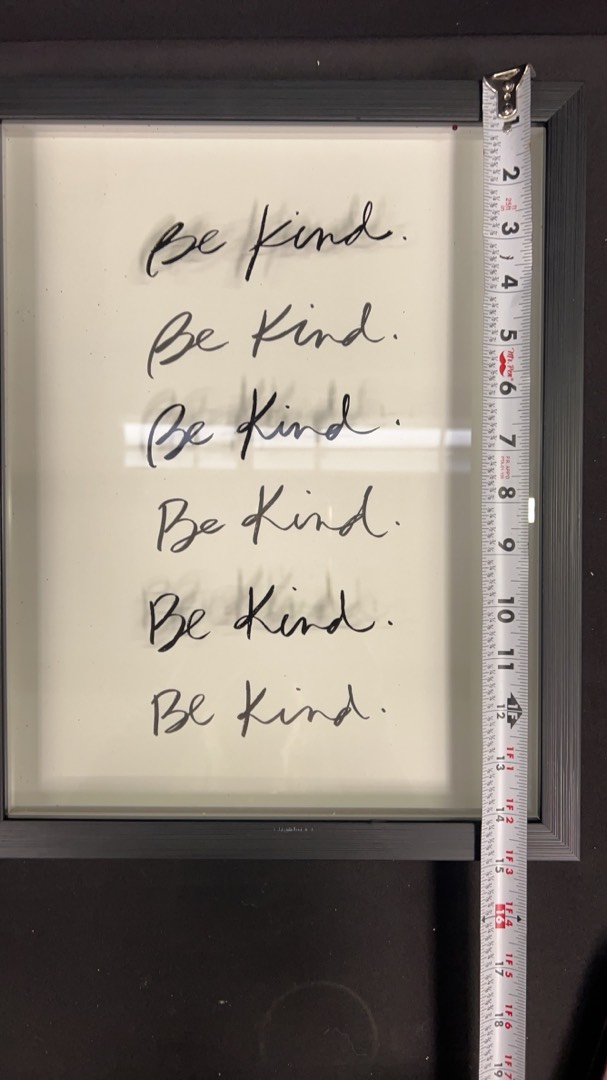 Be Kind.
Be Kind.
Be Kind.
Be Kind.
Be Kind.
Be Kind.
1
2
25ft
3
4
5
6
7
8
9
10
11
1F
12
1F 1
13
1F 2
14
1F 3
15
1F 4
16
1F 5
17
1F 6
18
1F 7
19